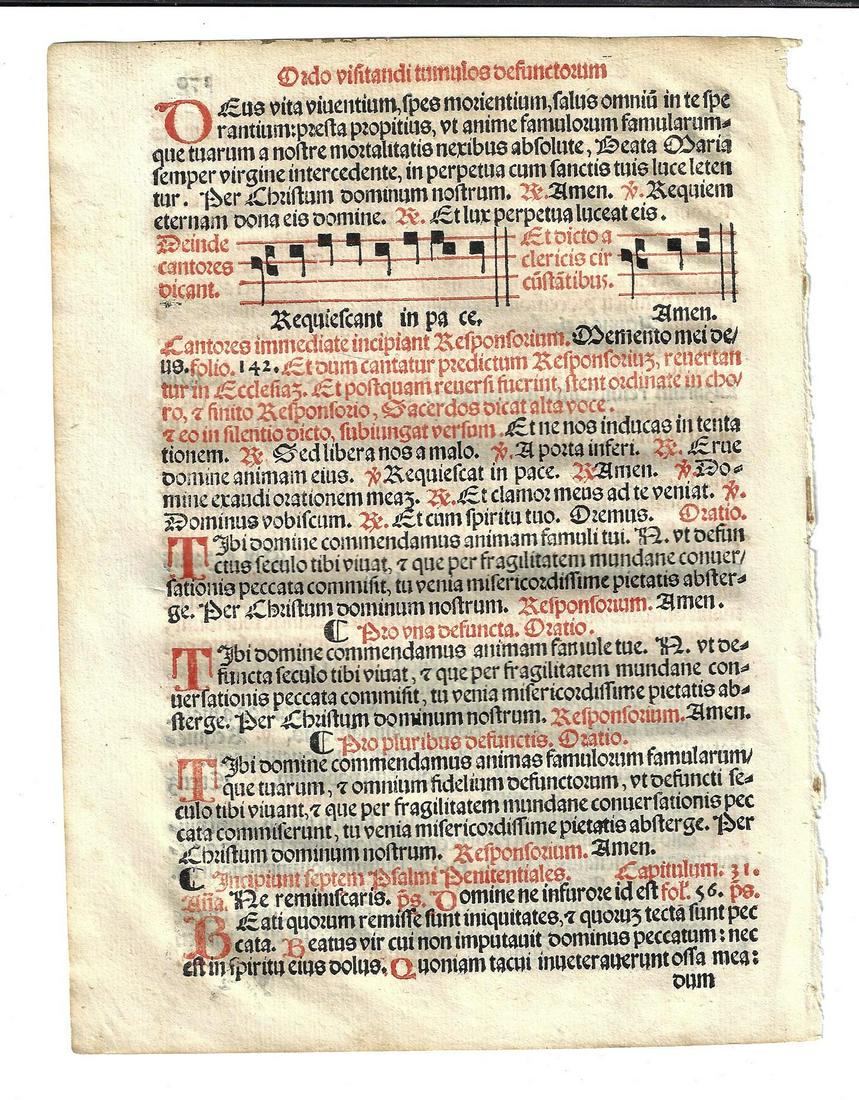 Ordo visitandi tumulos defunctorum
DEus vita viuentium, spes morientium, salus omniũ in te spe
rantium: presta propitius, vt anime famulorum famularum-
que tuarum a nostre mortalitatis nexibus absolute, Beata Maria
semper virgine intercedente, in perpetua cum sanctis tuis luce leten
tur. Per Christum dominum nostrum. ℟. Amen. ℣. Requiem
eternam dona eis domine. ℟. Et lux perpetua luceat eis.
Deinde
cantores
dicant.
Et dicto a
clericis cir
cũstãtibus.
Requiescant in pa ce.
Amen.
Cantores immediate incipiant Responsorium. Memento mei de/
us. folio. 142. Et dum cantatur predictum Responsoriuʒ, reuertan
tur in Ecclesiaʒ. Et postquam reuersi fuerint, stent ordinate in cho/
ro, ⁊ finito Responsorio, Sacerdos dicat alta voce.
⁊ eo in silentio dicto, subiungat versum. Et ne nos inducas in tenta
tionem. ℟. Sed libera nos a malo. ℣. A porta inferi. ℟. Erue
domine animam eius. ℣ Requiescat in pace. ℟ Amen. ℣. Do-
mine exaudi orationem meaʒ. ℟. Et clamor meus ad te veniat. ℣.
Dominus vobiscum. ℟. Et cum spiritu tuo. Oremus. Oratio.
TIbi domine commendamus animam famuli tui. N. vt defun
ctus seculo tibi viuat, ⁊ que per fragilitatem mundane conuer/
sationis peccata commisit, tu venia misericordissime pietatis abster-
ge. Per Christum dominum nostrum. Responsorium. Amen.
C Pro vna defuncta. Oratio.
TIbi domine commendamus animam famule tue. N. vt de-
functa seculo tibi viuat, ⁊ que per fragilitatem mundane con-
uersationis peccata commisit, tu venia misericordissime pietatis ab-
sterge. Per Christum dominum nostrum. Responsorium. Amen.
C Pro pluribus defunctis. Oratio.
TIbi domine commendamus animas famulorum famularum/
que tuarum, ⁊ omnium fidelium defunctorum, vt defuncti se-
culo tibi viuant, ⁊ que per fragilitatem mundane conuersationis pec
cata commiserunt, tu venia misericordissime pietatis absterge. Per
Christum dominum nostrum. Responsorium. Amen.
C Incipiunt septem Psalmi Penitentiales. Capitulum. 31.
Aña. Ne reminiscaris. p̃s. Domine ne in furore id est fol. 56. p̃s.
BEati quorum remisse sunt iniquitates, ⁊ quoruʒ tecta sunt pec
cata. Beatus vir cui non imputauit dominus peccatum: nec
est in spiritu eius dolus. Quoniam tacui inueterauerunt ossa mea:
dum